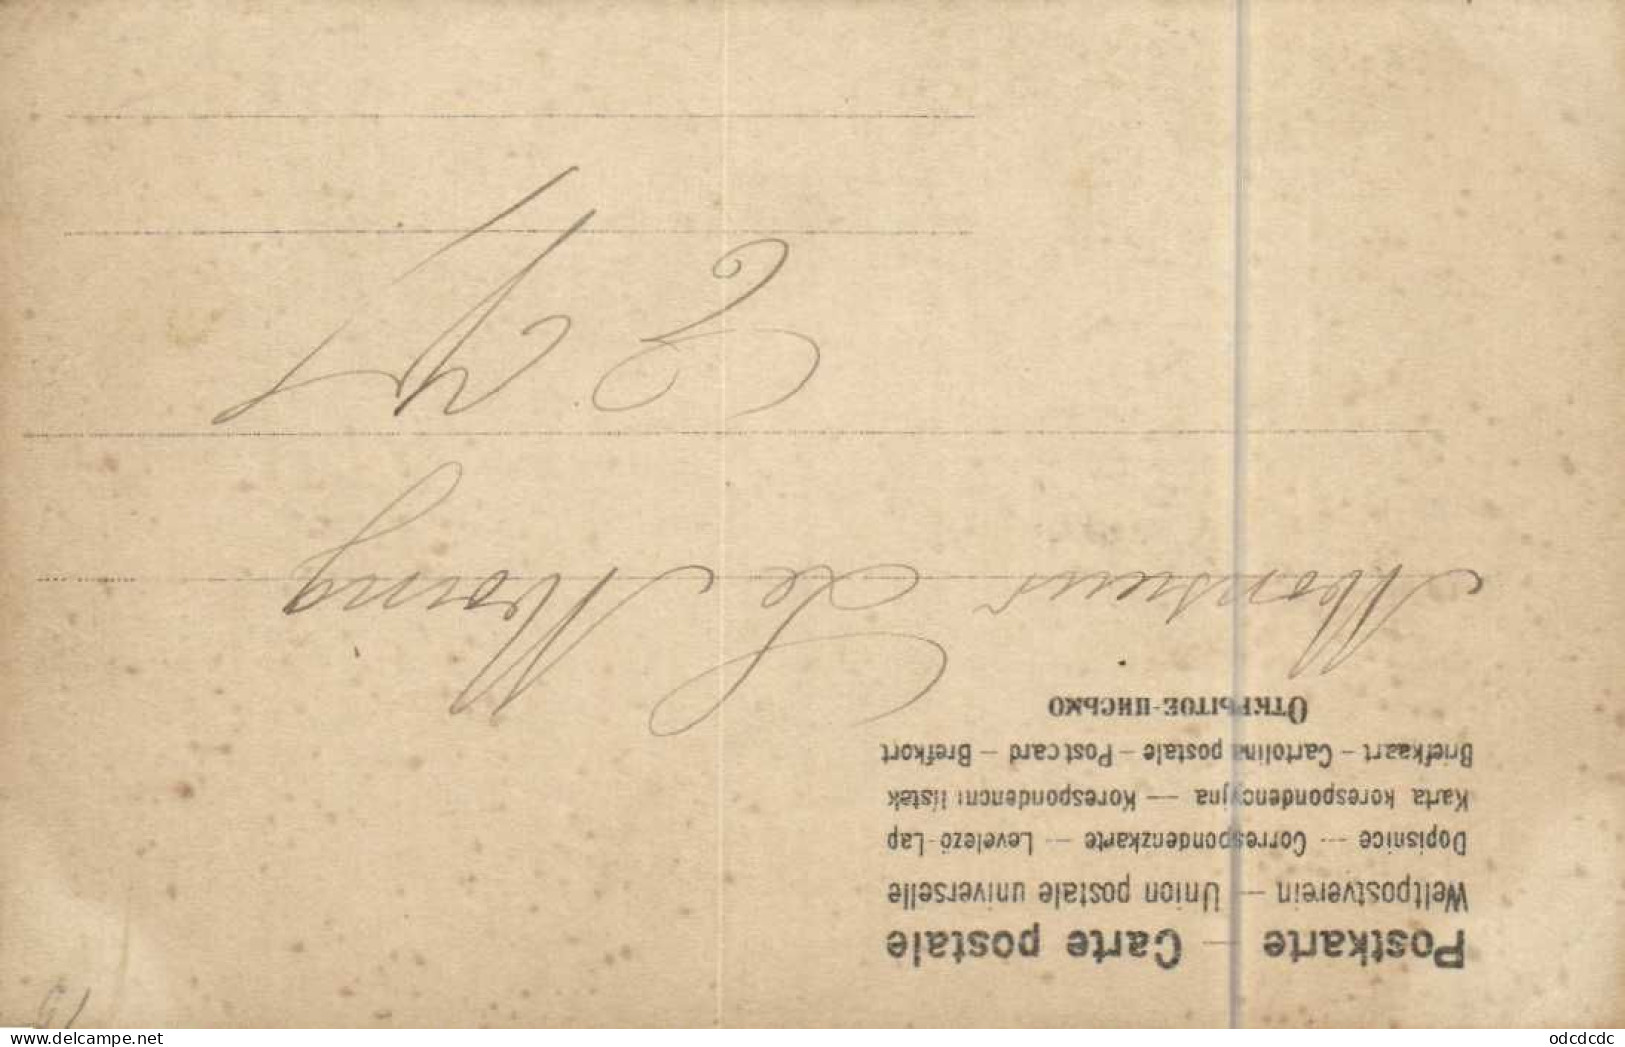 Postkarte — Carte postale
Weltpostverein — Union postale universelle
Dopisnice — Correspondenzkarte — Levelező-Lap
Karta korespondencyjna — Korespondenční lístek
Briefkaart — Cartolina postale — Post card — Brefkort
Открытое письмо
Monsieur Le Moing
15
delcampe.net
odcdcdc